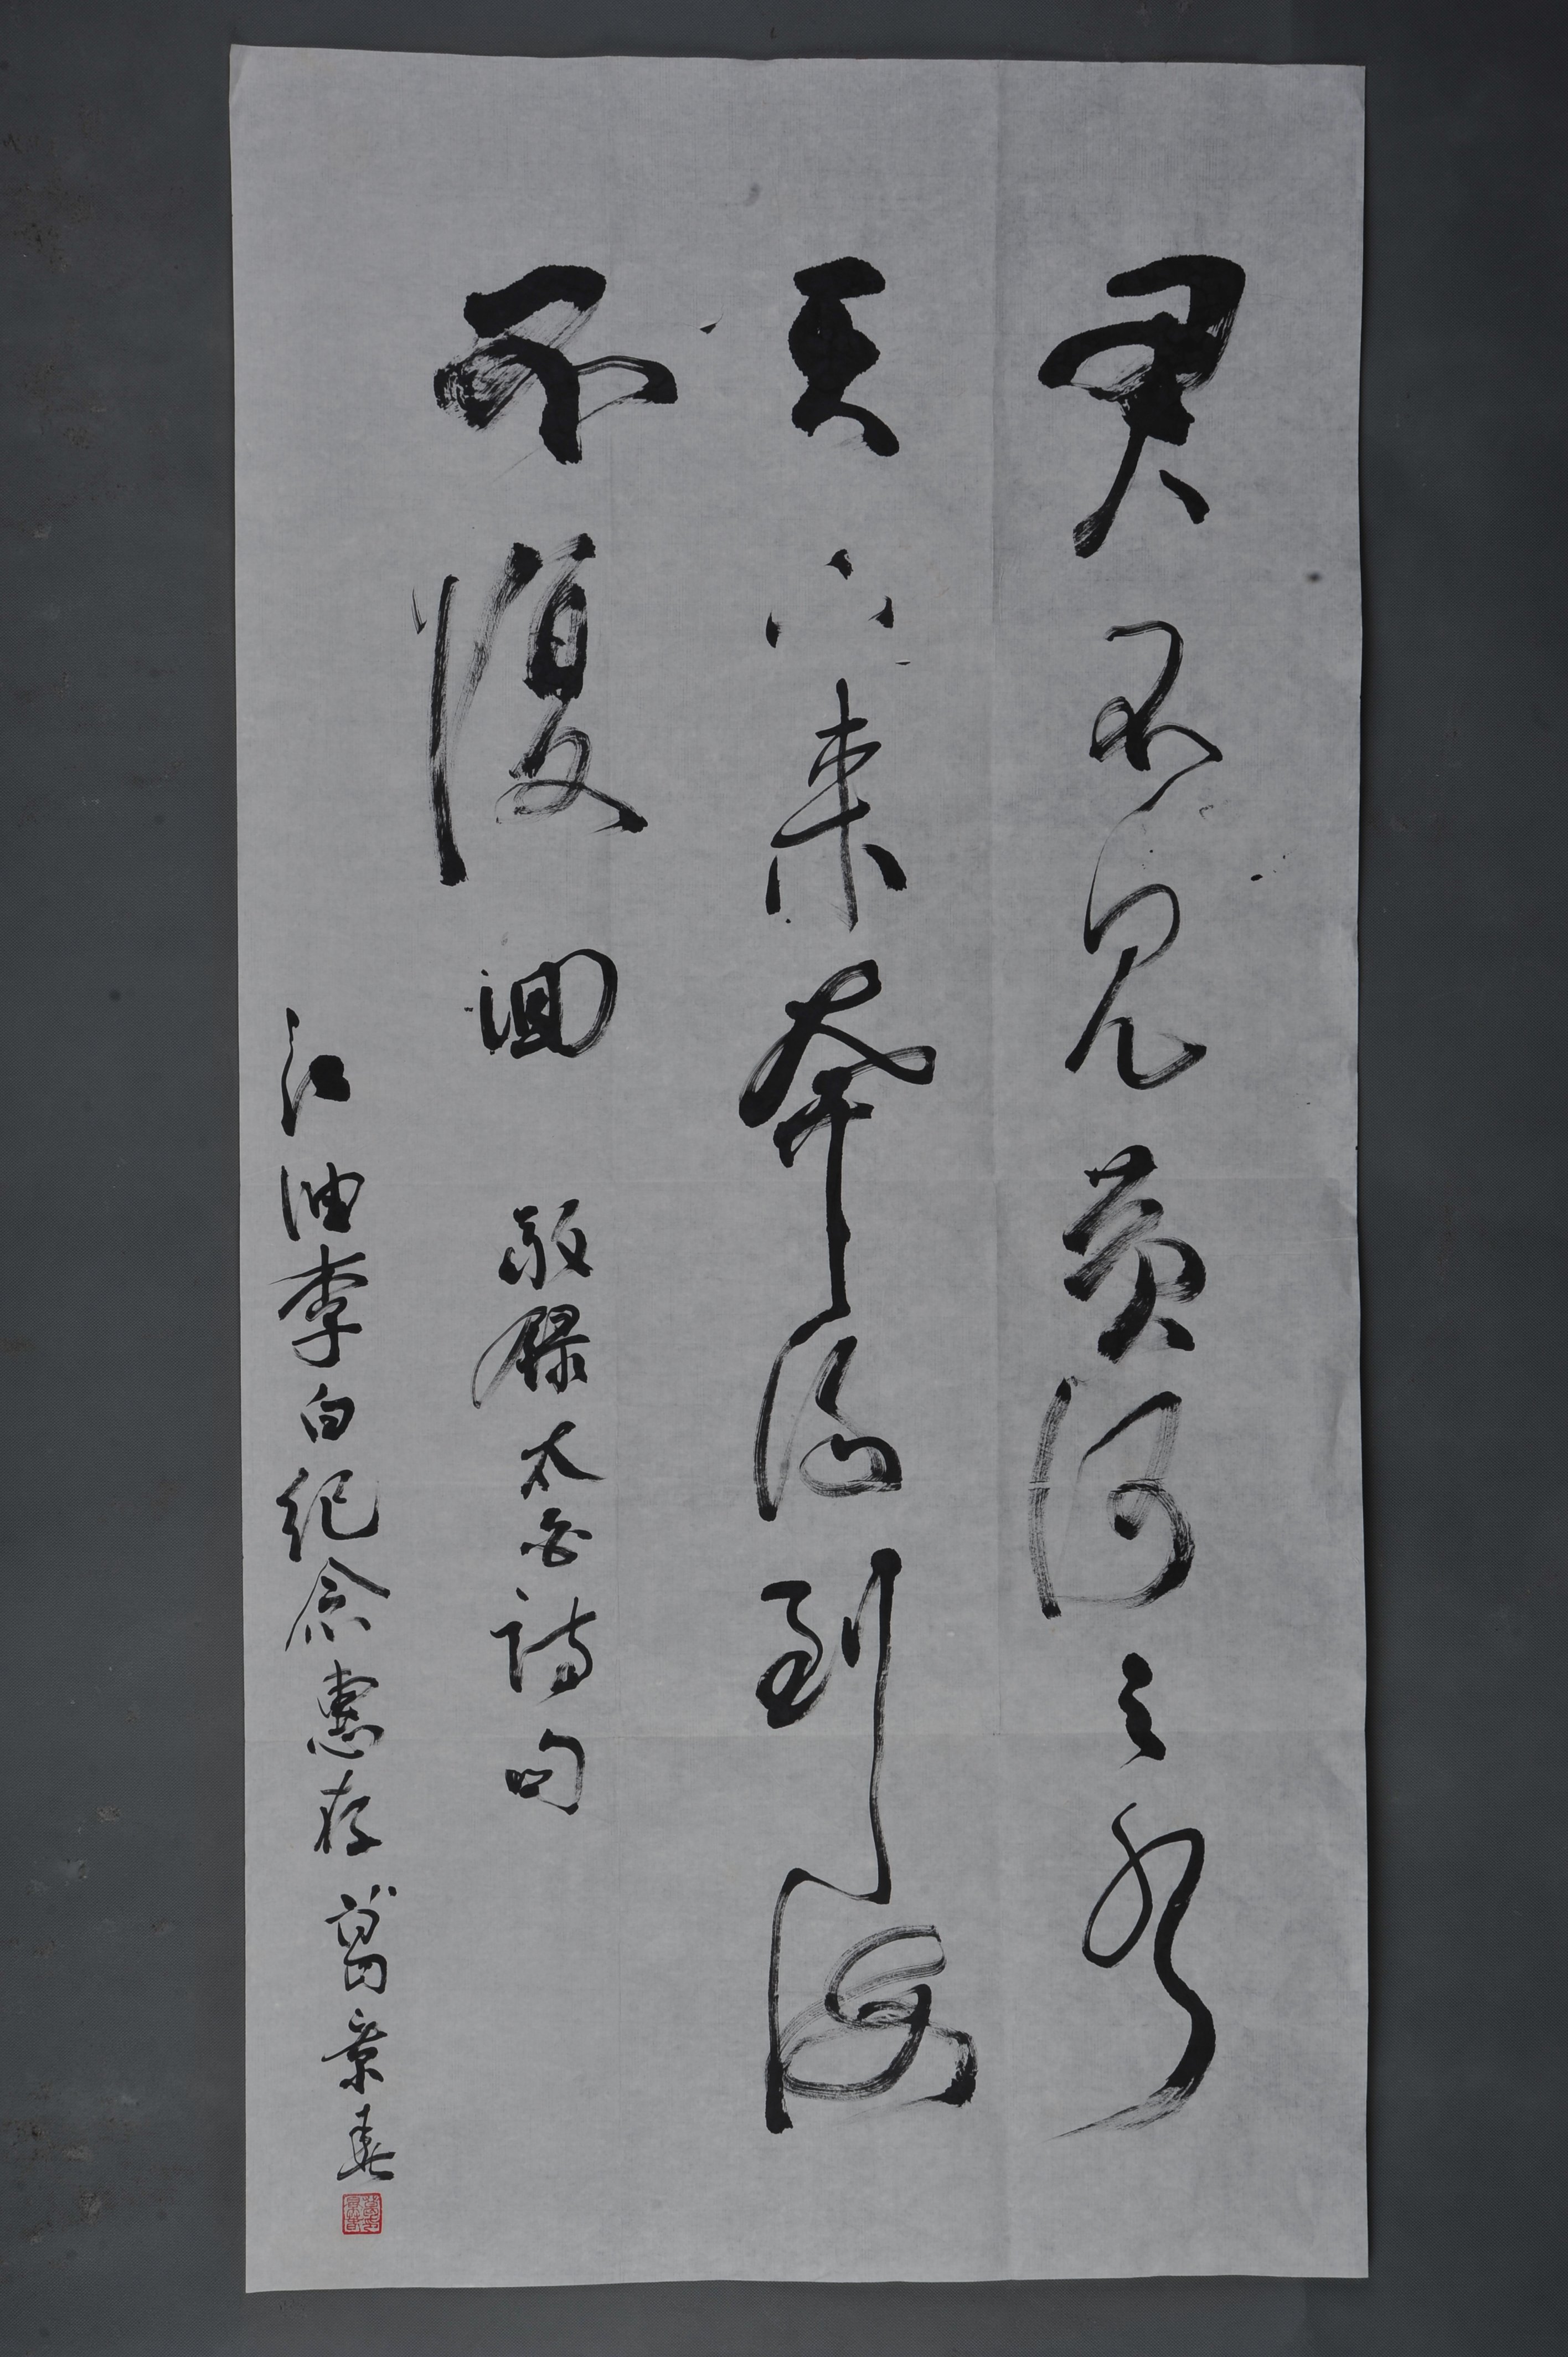 君不見黄河之水
天上来奔流到海
不復回 敬録太白詩句
江油李白纪念惠存 葛景春